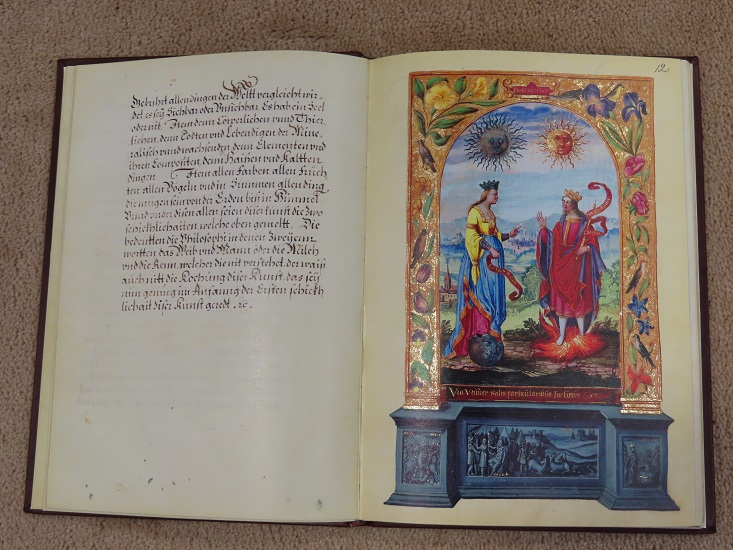 Die kunst allen dingen der Weltt vergleicht wir-
det, es seÿ Sichbar oder Unsichbar, Es hab ein Seel
oder nit. Item denn Cörperlichen vnnd Thier-
lichenn, denn Todten vnd Lebendigen der Mine-
ralisch vnnd wachsenden denn Elementen vnnd
ihren Compositen denn Haissen vnd Kaltten
dingen. Item allen Farben allen Früch
ten allen Vogeln vnd in Summen allen ding
die mügen sein von der Erden bis in Himmel
Vnnd vnder disen allen seien diser kunst die Zwo
schickhlichaitten welche oben gemeltt. Die
bedeutten die Philosophi in denen Zweÿenn
wortten das Weib vnd Mann oder die Milch
vnd die Renn, welcher die nit verstehet, der waiß
auch nitt die Kochung diser Kunst, das seÿ
nun genueg im Anfanng der Ersten schickh
lichait diser Kunst geredt. ec.
12
Via Vniuersalis particularibus Inclusis